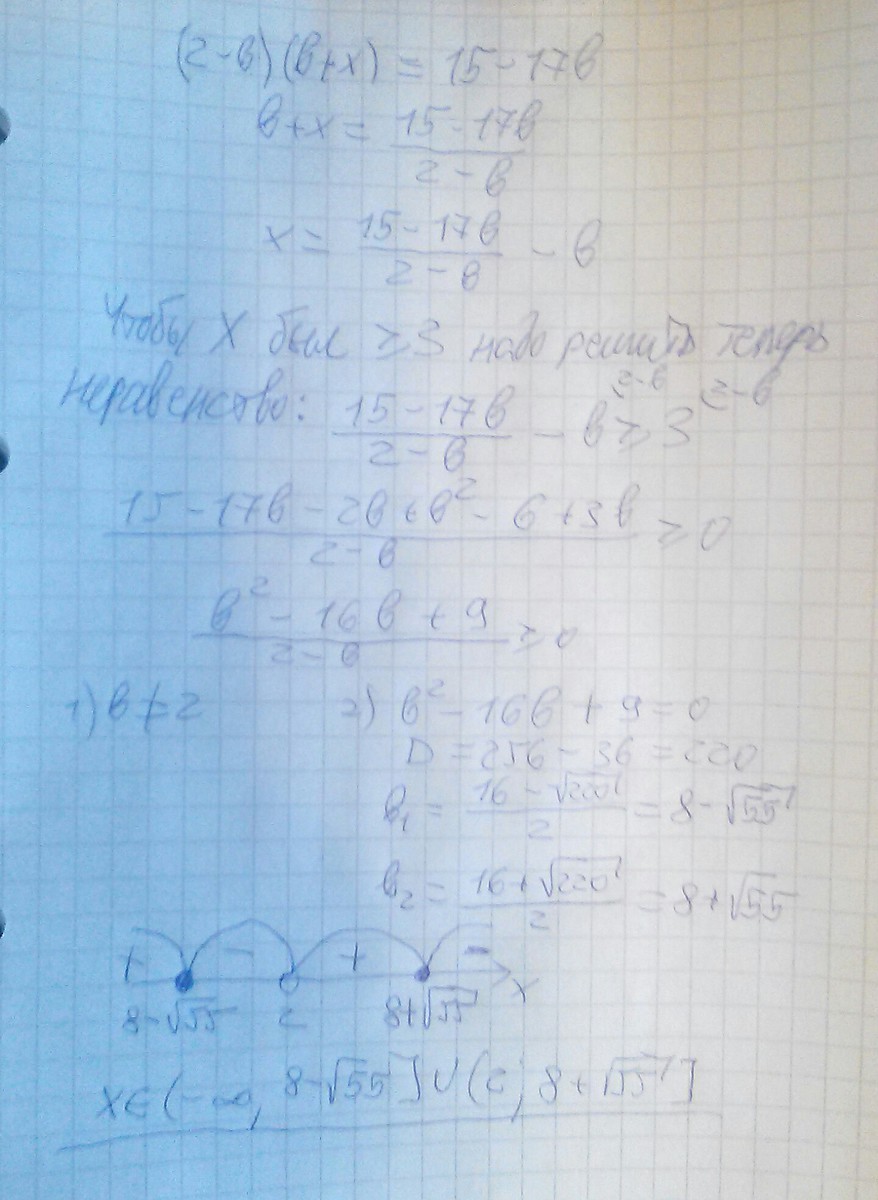 (2-в)(в+х) = 15-17в
в+х = \frac{15-17в}{2-в}
х = \frac{15-17в}{2-в} - в
Чтобы х был ≥3 надо решить теперь
неравенство: \frac{15-17в}{2-в} - в^{2-в} ≥ 3^{2-в}
\frac{15-17в-2в+в²-6+3в}{2-в} ≥ 0
\frac{в²-16в+9}{2-в} ≥ 0
1) в≠2 2) в²-16в+9=0
D = 256-36 = 220
в₁ = \frac{16-√220}{2} = 8-√55
в₂ = \frac{16+√220}{2} = 8+√55
+ - + -
8-√55 2 8+√55 х
х∈(-∞, 8-√55]∪(2; 8+√55]